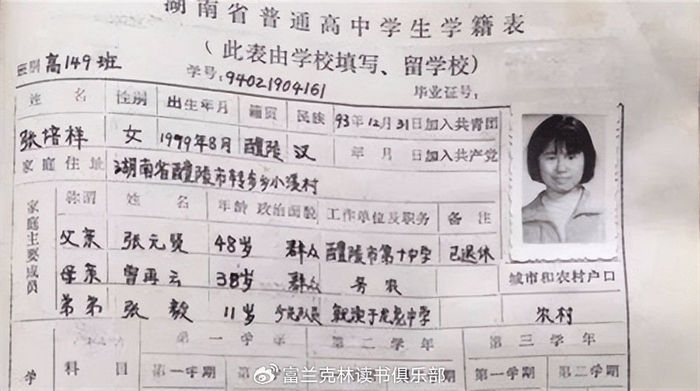 湖南省普通高中学生学籍表
(此表由学校填写、留学校)
班别 高149班 学号:94021904161 毕业证号:
姓名 性别 出生年月 籍贯 民族 93年12月31日加入共青团
张培祥 女 1979年8月 醴陵 汉 年 月 日加入共产党
家庭住址 湖南省醴陵市转步乡小溪村
家庭主要成员 称谓 姓名 年龄 政治面貌 工作单位及职务 备注
父亲 张元贤 48岁 群众 醴陵市第十中学 已退休
城市和农村户口
母亲 曾再云 38岁 群众 务农
弟弟 张毅 11岁 少先队员 农村
第一学年 第二学年 第三学年
学 科目 第一学期 第二学期 第一学期 第二学期
富兰克林读书俱乐部